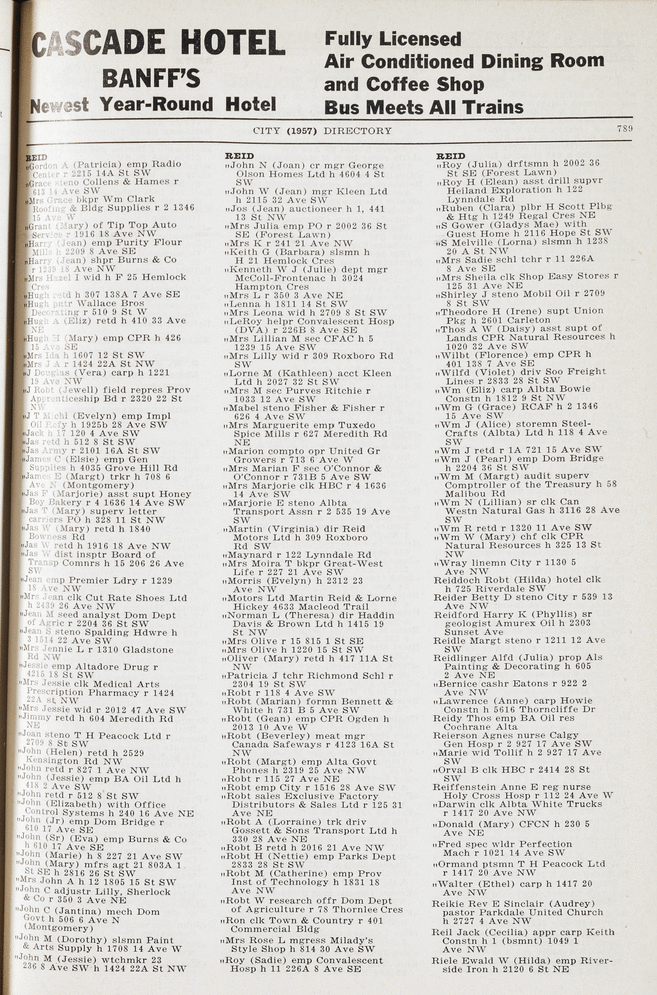 CASCADE HOTEL
BANFF'S
Newest Year-Round Hotel
Fully Licensed
Air Conditioned Dining Room
and Coffee Shop
Bus Meets All Trains
CITY (1957) DIRECTORY
789
REID
"Gordon A (Patricia) emp Radio
Center r 2215 14A St SW
"Grace steno Collens & Hames r
613 14 Ave SW
"Mrs Grace bkpr Wm Clark
Roofing & Bldg Supplies r 2 1346
15 Ave W
"Grant (Mary) of Tip Top Auto
Service r 1916 18 Ave NW
"Harry (Jean) emp Purity Flour
Mills h 2209 8 Ave SE
"Harry (Jean) shpr Burns & Co
r 1239 18 Ave NW
"Mrs Hazel I wid h F 25 Hemlock
Cres
"Hugh retd h 307 138A 7 Ave SE
"Hugh pntr Wallace Bros
Decorating r 510 9 St W
"Hugh A (Eliz) retd h 410 33 Ave
NE
"Hugh H (Mary) emp CPR h 426
15 Ave SE
"Mrs Ida h 1607 12 St SW
"Mrs J A r 1424 22A St NW
"J Douglas (Vera) carp h 1221
19 Ave NW
"J Robt (Jewell) field repres Prov
Apprenticeship Bd r 2320 22 St
NW
"J T Michl (Evelyn) emp Impl
Oil Refy h 1925b 28 Ave SW
"Jack h 17 120 4 Ave SW
"Jas retd h 512 8 St SW
"Jas Army r 2101 16A St SW
"James C (Elsie) emp Gen
Supplies h 4035 Grove Hill Rd
"James E (Margt) trkr h 708 6
Ave N (Montgomery)
"Jas F (Marjorie) asst supt Honey
Boy Bakery r 4 1636 14 Ave SW
"Jas T (Mary) superv letter
carriers PO h 328 11 St NW
"Jas W (Mary) retd h 1840
Bowness Rd
"Jas W retd h 1916 18 Ave NW
"Jas W dist insptr Board of
Transp Comnrs h 15 206 26 Ave
SW
"Jean emp Premier Ldry r 1239
18 Ave NW
"Mrs Jean clk Cut Rate Shoes Ltd
h 2439 26 Ave NW
"Jean M seed analyst Dom Dept
of Agric r 2204 36 St SW
"Jean S steno Spalding Hdwre h
3 1514 22 Ave SW
"Mrs Jennie L r 1310 Gladstone
Rd NW
"Jessie emp Altadore Drug r
4215 18 St SW
"Mrs Jessie clk Medical Arts
Prescription Pharmacy r 1424
22A st NW
"Mrs Jessie wid r 2012 47 Ave SW
"Jimmy retd h 604 Meredith Rd
NE
"Joan steno T H Peacock Ltd r
2709 8 St SW
"John (Helen) retd h 2529
Kensington Rd NW
"John retd r 827 1 Ave NW
"John (Jessie) emp BA Oil Ltd h
418 2 Ave SW
"John retd r 512 8 St SW
"John (Elizabeth) with Office
Control Systems h 240 16 Ave NE
"John (Jr) emp Dom Bridge r
610 17 Ave SE
"John (Sr) (Eva) emp Burns & Co
h 610 17 Ave SE
"John (Marie) h 8 827 21 Ave SW
"John (Mary) mfrs agt 21 803A 1
St SE h 2816 26 St SW
"Mrs John A h 12 1805 15 St SW
"John C adjustr Lilly, Sherlock
& Co r 350 3 Ave NE
"John C (Jantina) mech Dom
Govt h 506 6 Ave N
(Montgomery)
"John M (Dorothy) slsmn Paint
& Arts Supply h 1708 14 Ave W
"John M (Jessie) wtchmkr 23
236 8 Ave SW h 1424 22A St NW
REID
"John N (Joan) cr mgr George
Olson Homes Ltd h 4604 4 St
SW
"John W (Jean) mgr Kleen Ltd
h 2115 32 Ave SW
"Jos (Jean) auctioneer h 1, 441
13 St NW
"Mrs Julia emp PO r 2002 36 St
SE (Forest Lawn)
"Mrs K r 241 21 Ave NW
"Keith G (Barbara) slsmn h
H 21 Hemlock Cres
"Kenneth W J (Julie) dept mgr
McColl-Frontenac h 3024
Hampton Cres
"Mrs L r 350 3 Ave NE
"Lenna h 1811 14 St SW
"Mrs Leona wid h 2709 8 St SW
"LeRoy helpr Convalescent Hosp
(DVA) r 226B 8 Ave SE
"Mrs Lillian M sec CFAC h 5
1239 15 Ave SW
"Mrs Lilly wid r 309 Roxboro Rd
SW
"Lorne M (Kathleen) acct Kleen
Ltd h 2027 32 St SW
"Mrs M sec Purves Ritchie r
1033 12 Ave SW
"Mabel steno Fisher & Fisher r
626 4 Ave SW
"Mrs Marguerite emp Tuxedo
Spice Mills r 627 Meredith Rd
NE
"Marion compto opr United Gr
Growers r 713 6 Ave W
"Mrs Marian F sec O'Connor &
O'Connor r 731B 5 Ave SW
"Mrs Marjorie clk HBC r 4 1636
14 Ave SW
"Marjorie E steno Albta
Transport Assn r 2 535 19 Ave
SW
"Martin (Virginia) dir Reid
Motors Ltd h 309 Roxboro
Rd SW
"Maynard r 122 Lynndale Rd
"Mrs Moira T bkpr Great-West
Life r 227 21 Ave SW
"Morris (Evelyn) h 2312 23
Ave NW
"Motors Ltd Martin Reid & Lorne
Hickey 4633 Macleod Trail
"Norman L (Theresa) dir Haddin
Davis & Brown Ltd h 1415 19
St NW
"Mrs Olive r 15 815 1 St SE
"Mrs Olive h 1220 15 St SW
"Oliver (Mary) retd h 417 11A St
NW
"Patricia J tchr Richmond Schl r
2304 19 St SW
"Robt r 118 4 Ave SW
"Robt (Marian) formn Bennett &
White h 731 B 5 Ave SW
"Robt (Gean) emp CPR Ogden h
2013 10 Ave W
"Robt (Beverley) meat mgr
Canada Safeways r 4123 16A St
NW
"Robt (Margt) emp Alta Govt
Phones h 2319 25 Ave NW
"Robt r 115 27 Ave NE
"Robt emp City r 1516 28 Ave SW
"Robt sales Exclusive Factory
Distributors & Sales Ltd r 125 31
Ave NE
"Robt A (Lorraine) trk driv
Gossett & Sons Transport Ltd h
330 28 Ave NE
"Robt B retd h 2016 21 Ave NW
"Robt H (Nettie) emp Parks Dept
2833 28 St SW
"Robt M (Catherine) emp Prov
Inst of Technology h 1831 18
Ave NW
"Robt W research offr Dom Dept
of Agriculture r 78 Thornlee Cres
"Ron clk Town & Country r 401
Commercial Bldg
"Mrs Rose L mgress Milady's
Style Shop h 814 30 Ave SW
"Roy (Sadie) emp Convalescent
Hosp h 11 226A 8 Ave SE
REID
"Roy (Julia) drftsmn h 2002 36
St SE (Forest Lawn)
"Roy H (Elean) asst drill supvr
Heiland Exploration h 122
Lynndale Rd
"Ruben (Clara) plbr H Scott Plbg
& Htg h 1249 Regal Cres NE
"S Gower (Gladys Mae) with
Guest Home h 2116 Hope St SW
"S Melville (Lorna) slsmn h 1238
20 A St NW
"Mrs Sadie schl tchr r 11 226A
8 Ave SE
"Mrs Sheila clk Shop Easy Stores r
125 31 Ave NE
"Shirley J steno Mobil Oil r 2709
8 St SW
"Theodore H (Irene) supt Union
Pkg h 2601 Carleton
"Thos A W (Daisy) asst supt of
Lands CPR Natural Resources h
1020 32 Ave SW
"Wilbt (Florence) emp CPR h
401 138 7 Ave SE
"Wilfd (Violet) driv Soo Freight
Lines r 2833 28 St SW
"Wm (Eliz) carp Albta Bowie
Constn h 1812 9 St NW
"Wm G (Grace) RCAF h 2 1346
15 Ave SW
"Wm J (Alice) storemn Steel-
Crafts (Albta) Ltd h 118 4 Ave
SW
"Wm J retd r 1A 721 15 Ave SW
"Wm J (Pearl) emp Dom Bridge
h 2204 36 St SW
"Wm M (Margt) audit superv
Comptroller of the Treasury h 58
Malibou Rd
"Wm N (Lillian) sr clk Can
Westn Natural Gas h 3116 28 Ave
SW
"Wm R retd r 1320 11 Ave SW
"Wm W (Mary) chf clk CPR
Natural Resources h 325 13 St
NW
"Wray linemn City r 1130 5
Ave NW
Reiddoch Robt (Hilda) hotel clk
h 725 Riverdale SW
Reider Betty D steno City r 539 13
Ave NW
Reidford Harry K (Phyllis) sr
geologist Amurex Oil h 2303
Sunset Ave
Reidle Margt steno r 1211 12 Ave
SW
Reidlinger Alfd (Julia) prop Als
Painting & Decorating h 605
2 Ave NE
"Bernice cashr Eatons r 922 2
Ave NW
"Lawrence (Anne) carp Howie
Constn h 5616 Thorncliffe Dr
Reidy Thos emp BA Oil res
Cochrane Alta
Reierson Agnes nurse Calgy
Gen Hosp r 2 927 17 Ave SW
"Marie wid Tollif h 2 927 17 Ave
SW
"Orval B clk HBC r 2414 28 St
SW
Reiffenstein Anne E reg nurse
Holy Cross Hosp r 112 24 Ave W
"Darwin clk Albta White Trucks
r 1417 20 Ave NW
"Donald (Mary) CFCN h 230 5
Ave NE
"Fred spec wldr Perfection
Mach r 1021 14 Ave SW
"Ormand ptsmn T H Peacock Ltd
r 1417 20 Ave NW
"Walter (Ethel) carp h 1417 20
Ave NW
Reikie Rev E Sinclair (Audrey)
pastor Parkdale United Church
h 2727 4 Ave NW
Reil Jack (Cecilia) appr carp Keith
Constn h 1 (bsmnt) 1049 1
Ave NW
Riele Ewald W (Hilda) emp River-
side Iron h 2120 6 St NE